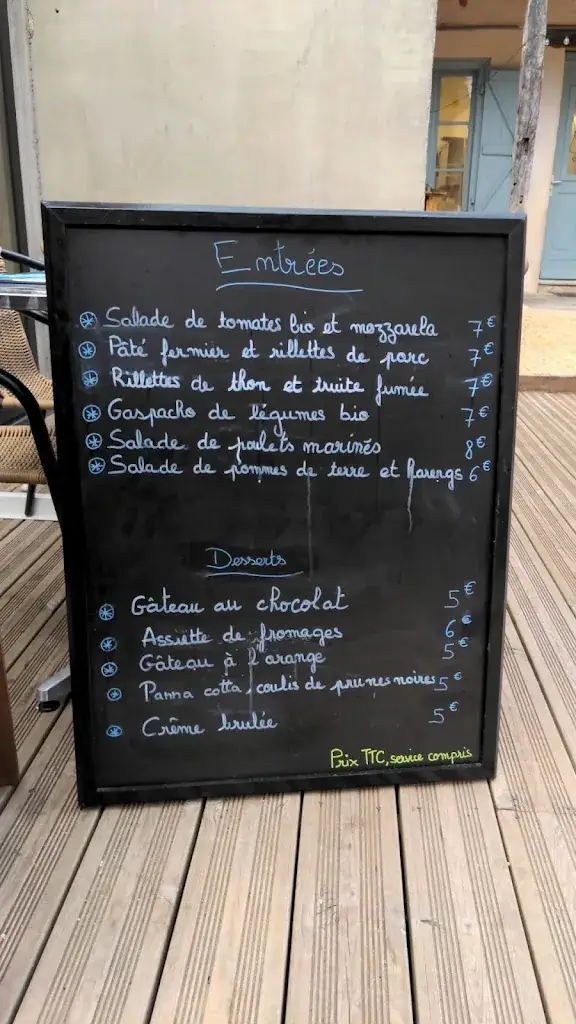 Entrées
Salade de tomates bio et mozzarela 7€
Pâté fermier et rillettes de porc 7€
Rillettes de thon et truite fumée 7€
Gaspacho de légumes bio 7€
Salade de poulets marinés 8€
Salade de pommes de terre et harengs 6€
Desserts
Gâteau au chocolat 5€
Assiette de fromages 6€
Gâteau à l'orange 5€
Panna cotta, coulis de prunes noires 5€
Crême brulée 5€
Prix TTC, service compris